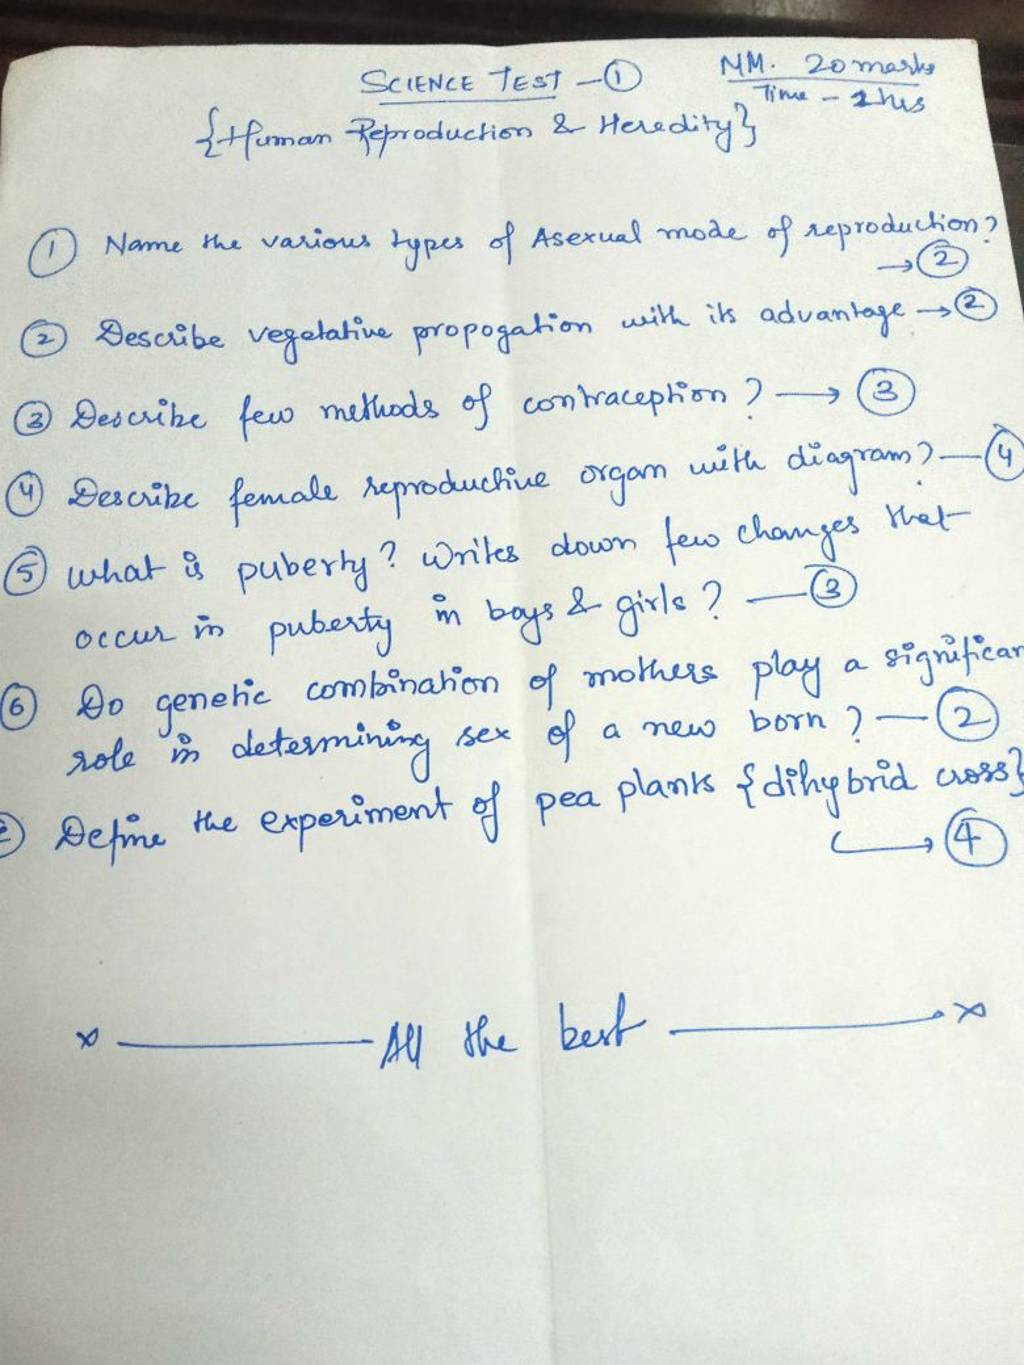 SCIENCE TEST - ①
MM. 20 marks
Time - 2 hrs
{Human Reproduction & Heredity}
① Name the various types of Asexual mode of reproduction?
→ ②
② Describe vegetative propogation with its advantage → ②
③ Describe few methods of contraception? → ③
④ Describe female reproductive organ with diagram? — ④
⑤ What is puberty? Writes down few changes that
occur in puberty in boys & girls? — ③
⑥ Do genetic combination of mothers play a significan
role in determining sex of a new born? — ②
Define the experiment of pea plants {dihybrid cross}
→ ④
x — All the best — x